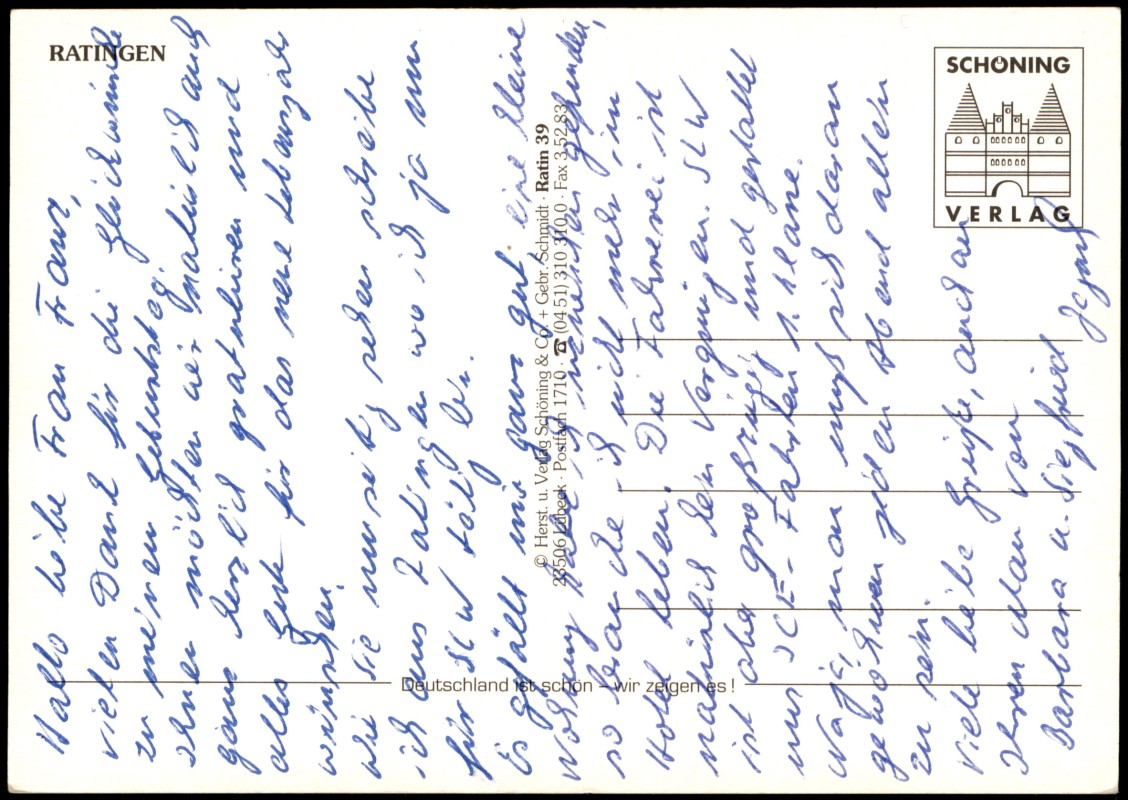 RATINGEN
SCHÖNING
VERLAG
© Herst. u. Verlag Schöning & Co. + Gebr. Schmidt · Ratin 39
23506 Lübeck · Postfach 1710 · ☎ (04 51) 310 310-0 · Fax 3 52 83
Deutschland ist schön – wir zeigen es !
Hallo liebe Frau Franz,
vielen Dank für die Glückwünsche
zu meinen Geburtstag,
Ihnen möchten wir nachträglich auch
ganz herzlich gratulieren und
alles Gute für das neue Lebensjahr
wünschen.
Wie Sie nun
sehen schreibe
ich aus Ratingen wo ich ja nun
für SLW tätig bin.
Es gefällt mir ganz gut eine kleine
Wohnung habe ich inzwischen gefunden,
so brauche ich nicht mehr im
Hotel leben. Die Fahrerei ist
natürlich kein Vergnügen. SLW
ist aber großzügig und gestattet
uns ICE-Fahrten
Na ja, man muß sich daran
gewöhnen jeden Abend allein
zu sein.
Viele liebe Grüße, auch an
Ihren Mann von
Barbara u. Siegfried